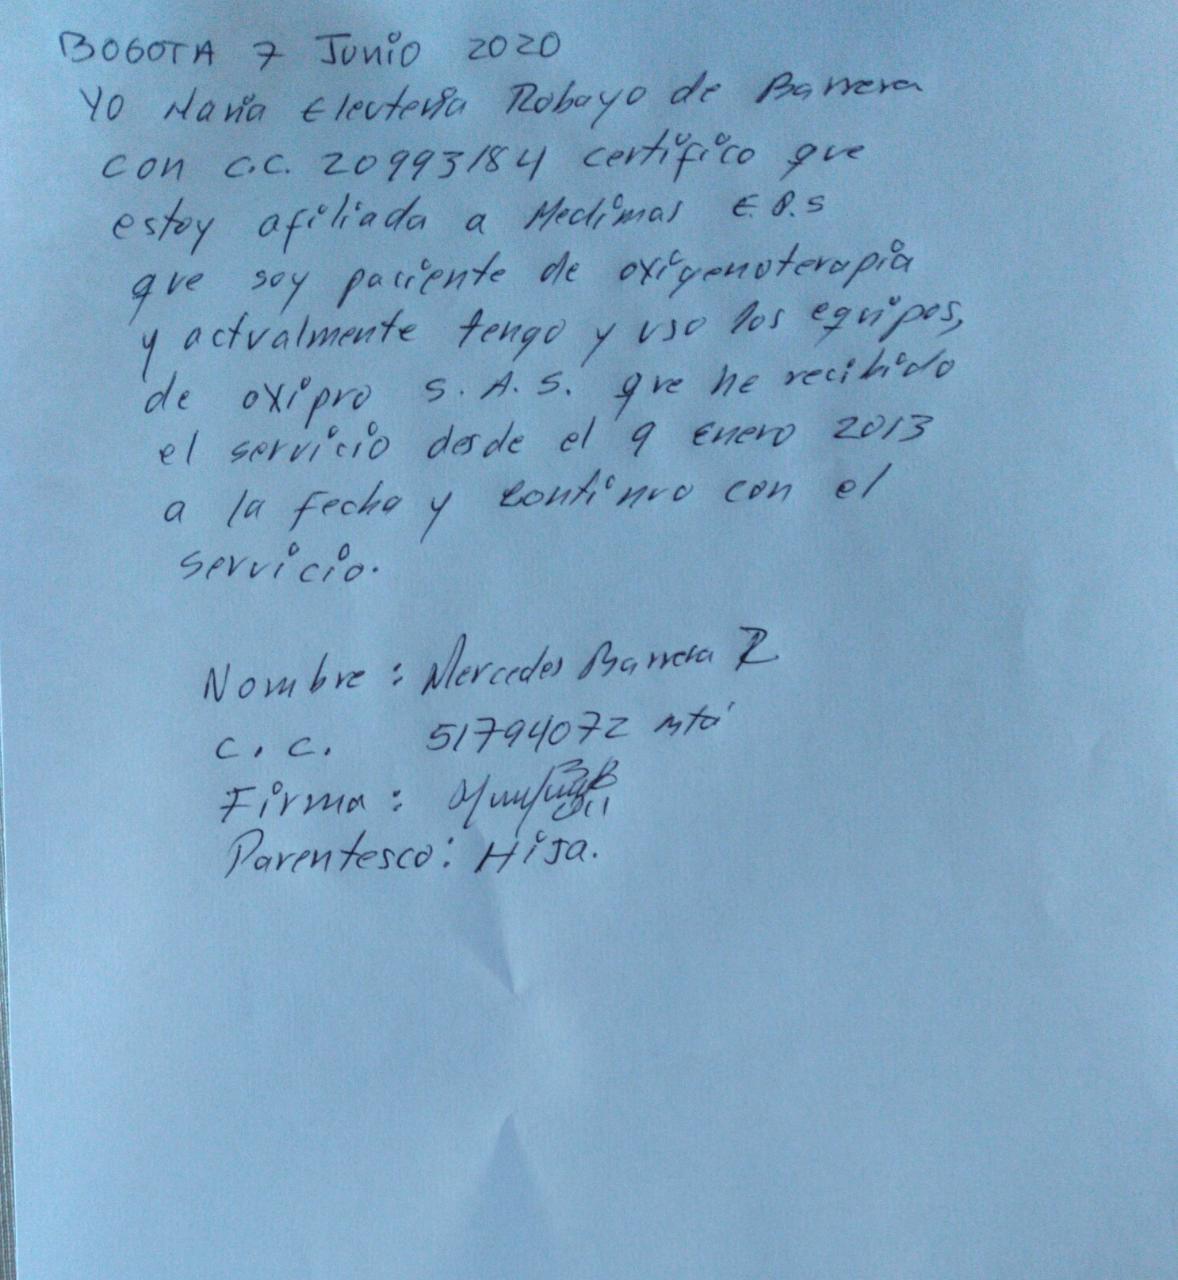 BOGOTA 7 Junio 2020
Yo Maria Eleuteria Robayo de Barrera
con c.c. 20993184 certifico que
estoy afiliada a Medimas E.P.S
que soy paciente de oxigenoterapia
y actualmente tengo y uso los equipos,
de oxipro S.A.S. que he recibido
el servicio desde el 9 Enero 2013
a la fecha y continuo con el
servicio.
Nombre: Mercedes Barrera R
C.C. 51794072
Firma:
Parentesco: Hija.